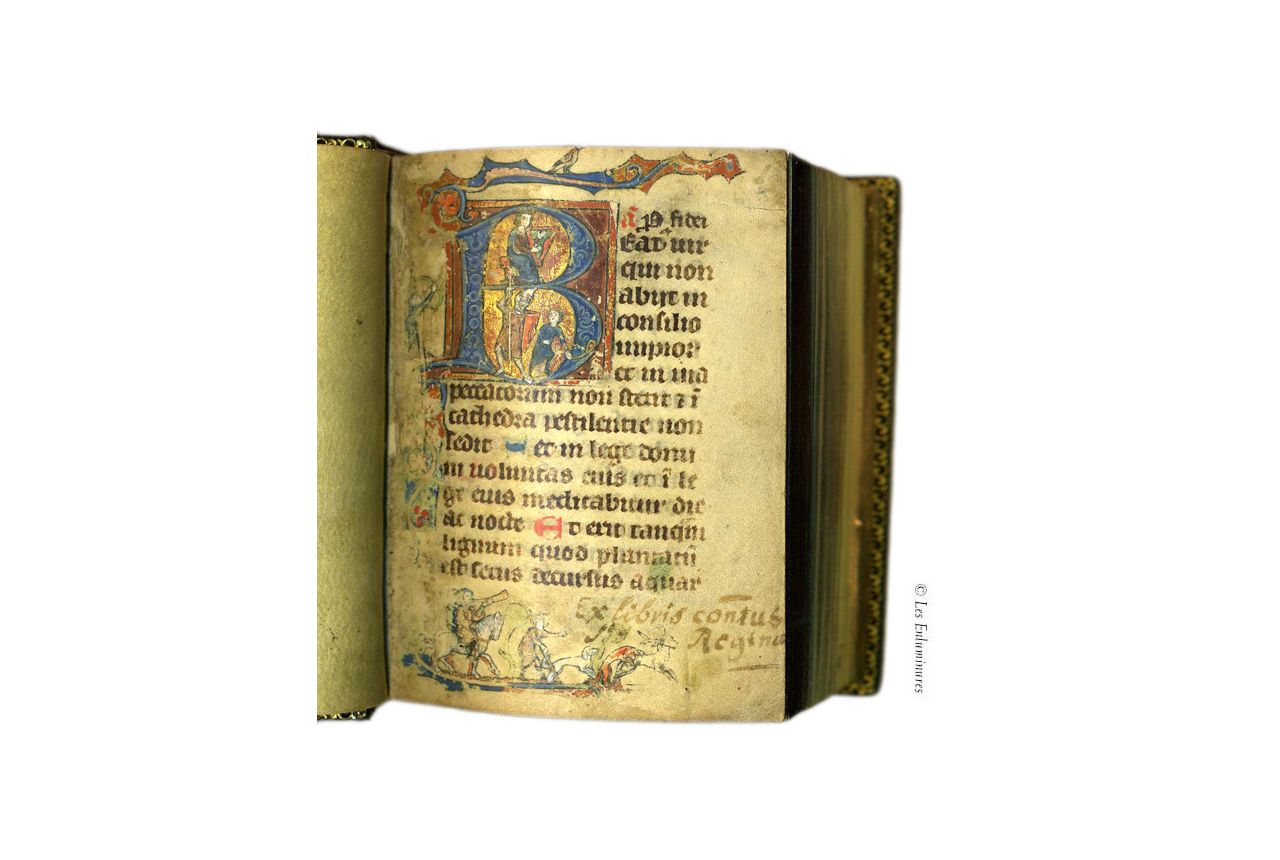 B
a͞ p͞ fidei
Eat᷑ uir
qui non
abijt in
consilio
impior᷑
et in uia
peccatorum non stetit ⁊ ī
cathedra pestilentie non
sedit et in lege domi
ni uoluntas eius et ī le
ge eius meditabitur die
ac nocte Et erit tanq̄m
lignum quod plantatū
est secus decursus aquar᷑
Ex libris con̄tus
Regina
© Les Enluminures